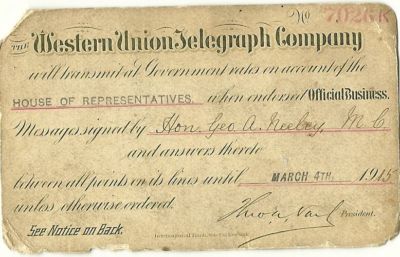 No 7026K
THE Western Union Telegraph Company
will transmit at Government rates on account of the
HOUSE OF REPRESENTATIVES. when endorsed Official Business.
Messages signed by Hon. Geo A. Neeley, M C
and answers thereto
between all points on its lines until MARCH 4TH, 1915
unless otherwise ordered.
President.
See Notice on Back.